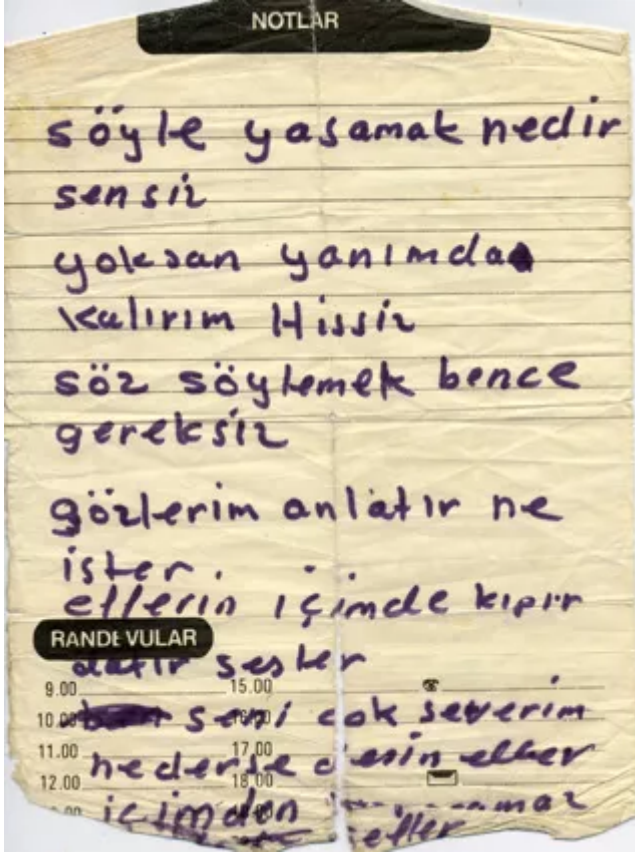 NOTLAR
söyle yasamak nedir
sensiz
yoksan yanımda
kalırım Hissiz
söz söylemek bence
gereksiz
gözlerim anlatır ne
ister.
ellerin içimde kıpır
RANDEVULAR
datır sesler
9.00 15.00
10.00 seni cok severim
11.00 17.00 nederse desin eller
12.00 18.00
içimden
eller